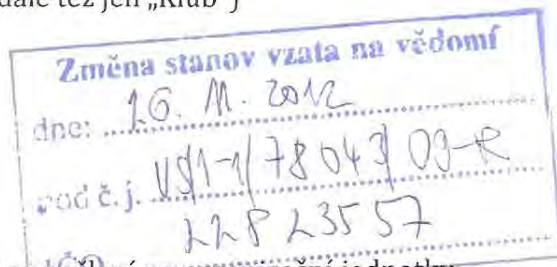 dále též jen „Klub“)
Změna stanov vzata na vědomí
dne: 26. 11. 2012
pod č.j. VS/1-1/78 043/09-R
228 235 57
jednotky